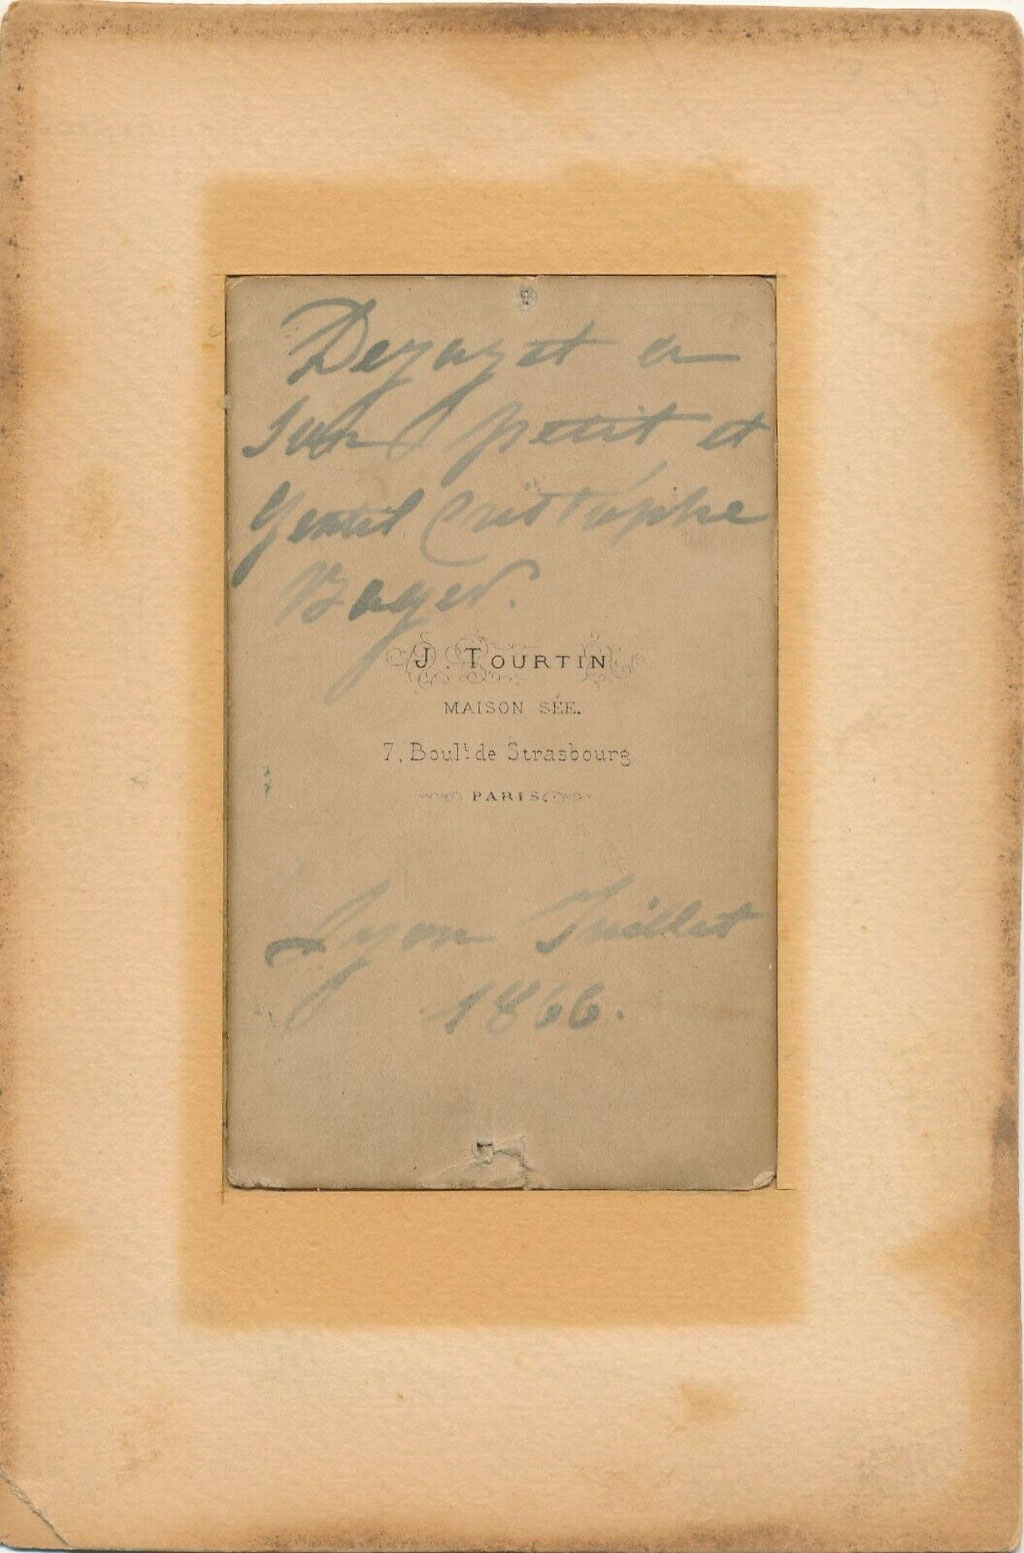 Dejazet a
son petit et
gentil Cristophe
Bager.
J. TOURTIN
MAISON SÉE.
7, Boul.t de Strasbourg
PARIS
Lyon Juillet
1866.